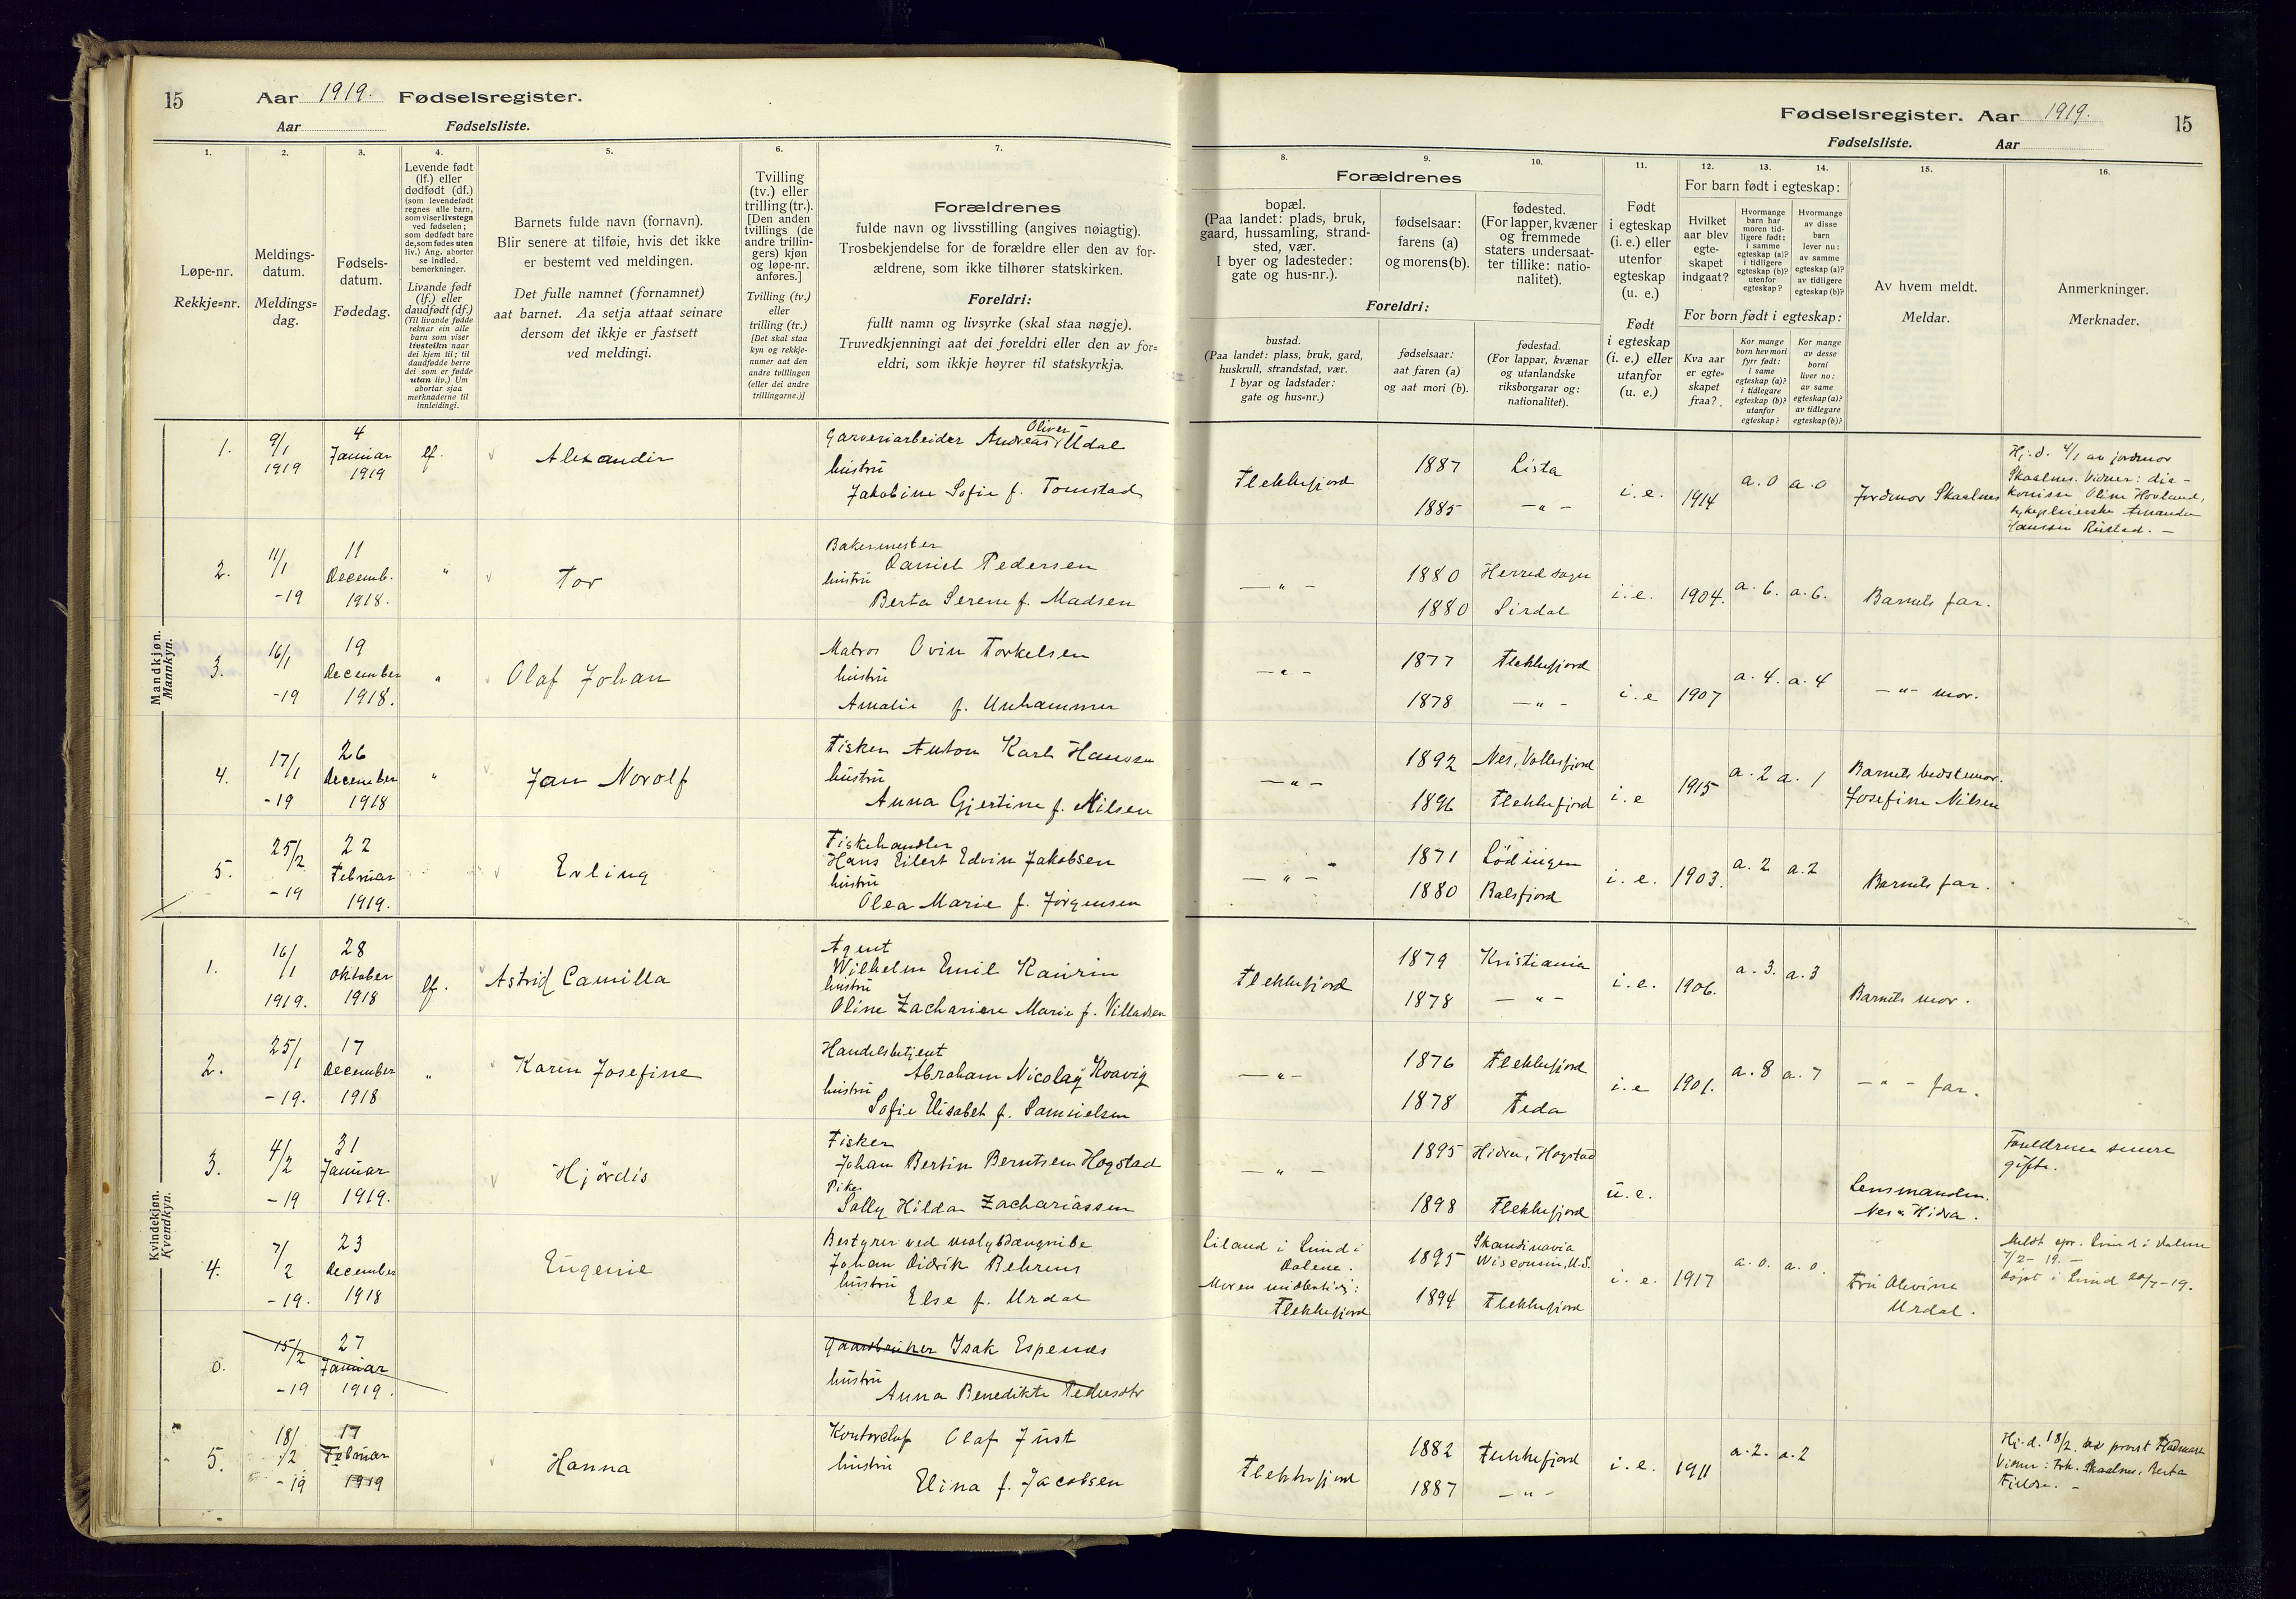 15 Aar 1919. Fødselsregister.
Aar Fødselsliste.
Fødselsregister. Aar 1919. 15
Fødselsliste. Aar
1.
Løpe-nr.
Rekkje-nr.
2.
Meldings-
datum.
Meldings-
dag.
3.
Fødsels-
datum.
Fødedag.
4.
Levende født
(lf.) eller
dødfødt (df.)
(som levendefødt
regnes alle barn,
som viser livstegn
ved fødselen;
som dødfødt bare
de, som fødes uten
liv.) Ang. aborter
se indled.
bemerkninger.
Livande født
(lf.) eller
daudfødt (df.)
(Til livande fødde
reknar ein alle
barn som viser
livsteikn naar
dei kjem til; til
daudfødde berre
dei som er fødde
utan liv.) Um
abortar sjaa
merknaderne til
innleidingi.
5.
Barnets fulde navn (fornavn).
Blir senere at tilføie, hvis det ikke
er bestemt ved meldingen.
Det fulle namnet (fornamnet)
aat barnet. Aa setja attaat seinare
dersom det ikkje er fastsett
ved meldingi.
6.
Tvilling
(tv.) eller
trilling (tr.).
[Den anden
tvillings (de
andre trillin-
gers) kjøn
og løpe-nr.
anføres.]
Tvilling (tv.)
eller
trilling (tr.)
[Det skal staa
kyn og rekkje-
numer aat den
andre tvillingen
(eller dei andre
trillingarne.)]
7.
Forældrenes
fulde navn og livsstilling (angives nøiagtig).
Trosbekjendelse for de forældre eller den av for-
ældrene, som ikke tilhører statskirken.
Foreldri:
fullt namn og livsyrke (skal staa nøgje).
Truvedkjenningi aat dei foreldri eller den av for-
eldri, som ikkje høyrer til statskyrkja.
Forældrenes
8.
bopæl.
(Paa landet: plads, bruk,
gaard, hussamling, strand-
sted, vær.
I byer og ladesteder:
gate og hus-nr.).
Foreldri:
bustad.
(Paa landet: plass, bruk, gard,
huskrull, strandstad, vær.
I byar og ladstader:
gate og hus-nr.)
9.
fødselsaar:
farens (a)
og morens (b).
fødselsaar:
aat faren (a)
og aat mori (b).
10.
fødested.
(For lapper, kvæner
og fremmede
staters undersaat-
ter tillike: natio-
nalitet).
fødestad.
(For lappar, kvænar
og utanlandske
riksborgarar og:
nationalitet).
11.
Født
i egteskap
(i. e.) eller
utenfor
egteskap
(u. e.)
Født
i egteskap
(i. e.) eller
utanfor
(u. e.)
For barn født i egteskap:
12.
Hvilket
aar blev
egte-
skapet
indgaat?
13.
Hvormange
barn har
moren tid-
ligere født:
i samme
egteskap (a)?
i tidligere
egteskap (b)?
utenfor
egteskap?
14.
Hvormange
av disse
barn
lever nu:
av samme
egteskap (a)?
av tidligere
egteskap (b)?
For born født i egteskap:
Kva aar
er egte-
skapet
fraa?
Kor mange
born hev mori
fyrr født:
i same
egteskap (a)?
i tidlegare
egteskap (b)?
utanfor
egteskap?
Kor mange
av desse
borni
liver no:
av same
egteskap (a)?
av tidlegare
egteskap (b)?
15.
Av hvem meldt.
Meldar.
16.
Anmerkninger.
Merknader.
Mandkjøn.
Mannkyn.
1. 9/1 1919 4 Januar 1919 lf. Alexander
Garveriarbeider Andreas Oliver Udal
hustru
Jakobine Sofie f. Tomstad
Flekkefjord 1887 Lista
1885 — " — i. e. 1914 a. 0 a. 0 Jordmor Skaalnes
Hj. d. 4/1 av jordmor
Skaalnes. Vidner: dia-
konisse Oline Hovland,
sykepleierske Amanda
Hanssen Rustad. —
2. 11/1 -19 11 Decemb. 1918. " Tor
Bakermester
Daniel Pedersen
hustru
Berta Serene f. Madsen
— " — 1880 Herred sogn
1880 Sirdal i. e. 1904. a. 6. a. 6. Barnets far.
3. 16/1 -19 19 December 1918. " Olaf Johan
Matros Ovin Torkelsen
hustru
Amalie f. Unhammer
— " — 1877 Flekkefjord
1878 — " — i. e 1907 a. 4. a. 4 — " — mor.
4. 17/1 -19 26 December 1918 " Jan Norolf
Fisker Anton Karl Hanssen
hustru
Anna Gjertine f. Nilsen
— " — 1892 Nes, Vollesfjord
1896 Flekkefjord i. e 1915 a. 2 a. 1 Barnets bedstemor.
Josefine Nilsen
5. 25/2 -19 22 Februar 1919. Erling
Fiskehandler
Hans Eilert Edvin Jakobsen
hustru
Olea Marie f. Jørgensen
— " — 1871 Lödingen
1880 Balsfjord i. e. 1903. a. 2 a. 2 Barnets far.
Kvindekjøn.
Kvendkyn.
1. 16/1 1919. 28 Oktober 1918 lf. Astrid Camilla
Agent
Wilhelm Emil Kaurin
hustru
Oline Zachariese Marie f. Villadsen
Flekkefjord 1879 Kristiania
1878 — " — i. e. 1906. a. 3. a. 3 Barnets mor.
2. 25/1 -19. 17 December 1918 " Karen Josefine
Handelsbetjent
Abraham Nicolay Kvavig
hustru
Sofie Elisabet f. Samuelsen
— " — 1876 Flekkefjord
1878 Feda i. e 1901. a. 8 a. 7 — " — far.
3. 4/2 -19 31 Januar 1919. Hjördis
Fisker
Johan Bertin Berntsen Hogstad
Pike
Solly Hilda Zachariassen
— " — 1895 Hidra, Hogstad
1898 Flekkefjord u. e. Lensmanden.
Nes & Hidra.
Foreldrene senere
gifte.
4. 7/2 -19. 23 December 1918 Eugenie
Bestyrer ved molybdængrube
Johan Didrik Behrens
hustru
Else f. Urdal
Liland i Lund i
Dalene.
Moren midlertidig:
Flekkefjord
1895 Skandinavia
Wisconsin, U.S.
1894 Flekkefjord i. e. 1917 a. 0. a. 0. Fru Olevine
Urdal.
Meldt spr. Lund i Dalene
7/2-19. —
Døpt i Lund 20/7-19.
0. 15/2 -19 27 Januar 1919.
Gaardbruker Isak Espenes
hustru
Anna Benedikte Pedersdtr
5. 18/2 -19 17 Februar 1919 Hanna
Kontorchef Olaf Just
hustru
Elina f. Jacobsen
Flekkefjord 1882 Flekkefjord
1887 — " — i. e. 1911 a. 2. a. 2
Hj. d. 18/2. ved prost
Vidner: Frk. Skaalnes, Berta